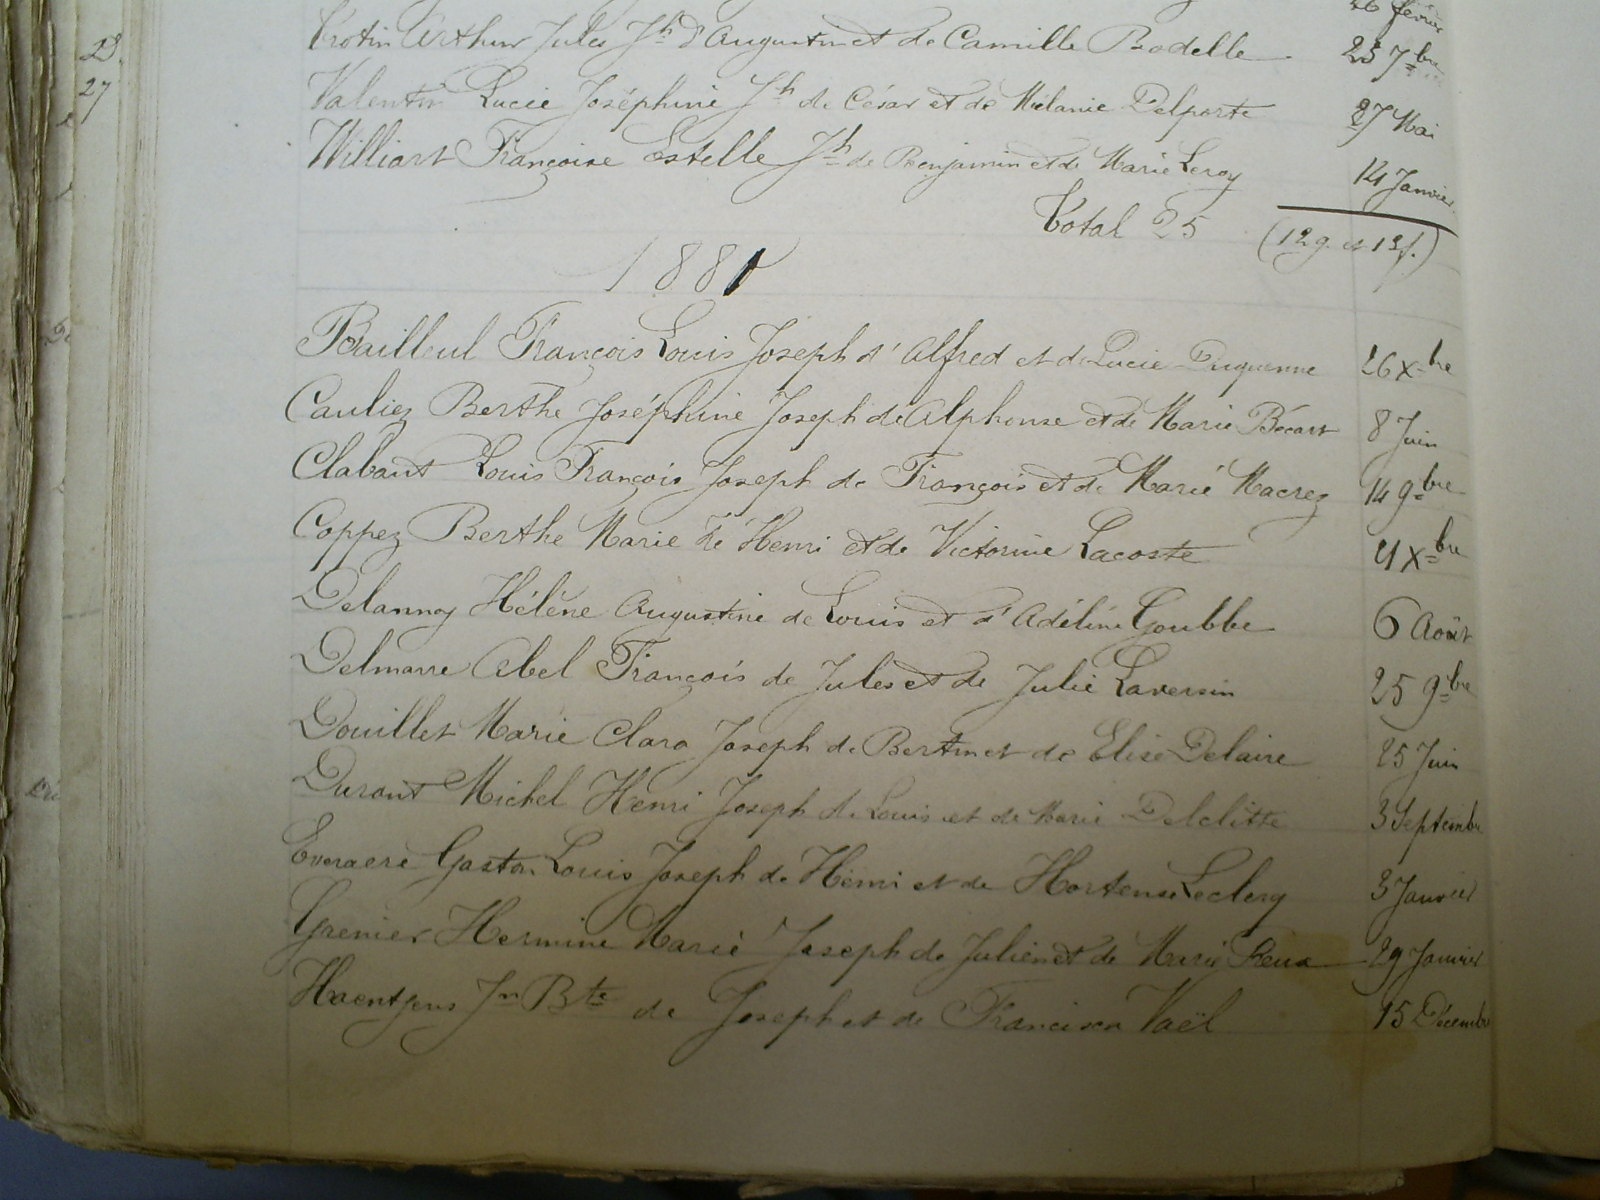 26 février
Crotin Arthur Jules Jh d'Augustin et de Camille Bodelle 25 7bre
Valentin Lucie Joséphine Jh de César et de Mélanie Delporte 27 Mai
Williart Françoise Estelle Jh de Benjamin et de Marie Leroy 14 Janvier
Total 25 (12 g. et 13 f.)
1881
Bailleul François Louis Joseph d'Alfred et de Lucie Duquenne 26 Xbre
Cauliez Berthe Joséphine Joseph de Alphonse et de Marie Bécart 8 Juin
Clabaut Louis François Joseph de François et de Marie Macrez 14 9bre
Coppez Berthe Marie de Henri et de Victorine Lacoste 4 Xbre
Delannoy Hélène Augustine de Louis et d'Adéline Goubbe 6 Août
Delmarre Abel François de Jules et de Julie Laversin 25 9bre
Douillet Marie Clara Joseph de Bertin et de Elise Delaire 25 Juin
Durant Michel Henri Joseph de Louis et de Marie Delclitte 3 Septembre
Everaere Gaston Louis Joseph de Henri et de Hortense Leclerq 3 Janvier
Grenier Hermine Marie Joseph de Julien et de Marie 29 Janvier
Haentjens Jn Bte de Joseph et de Francisca Vaël 15 Décembre
23.
27